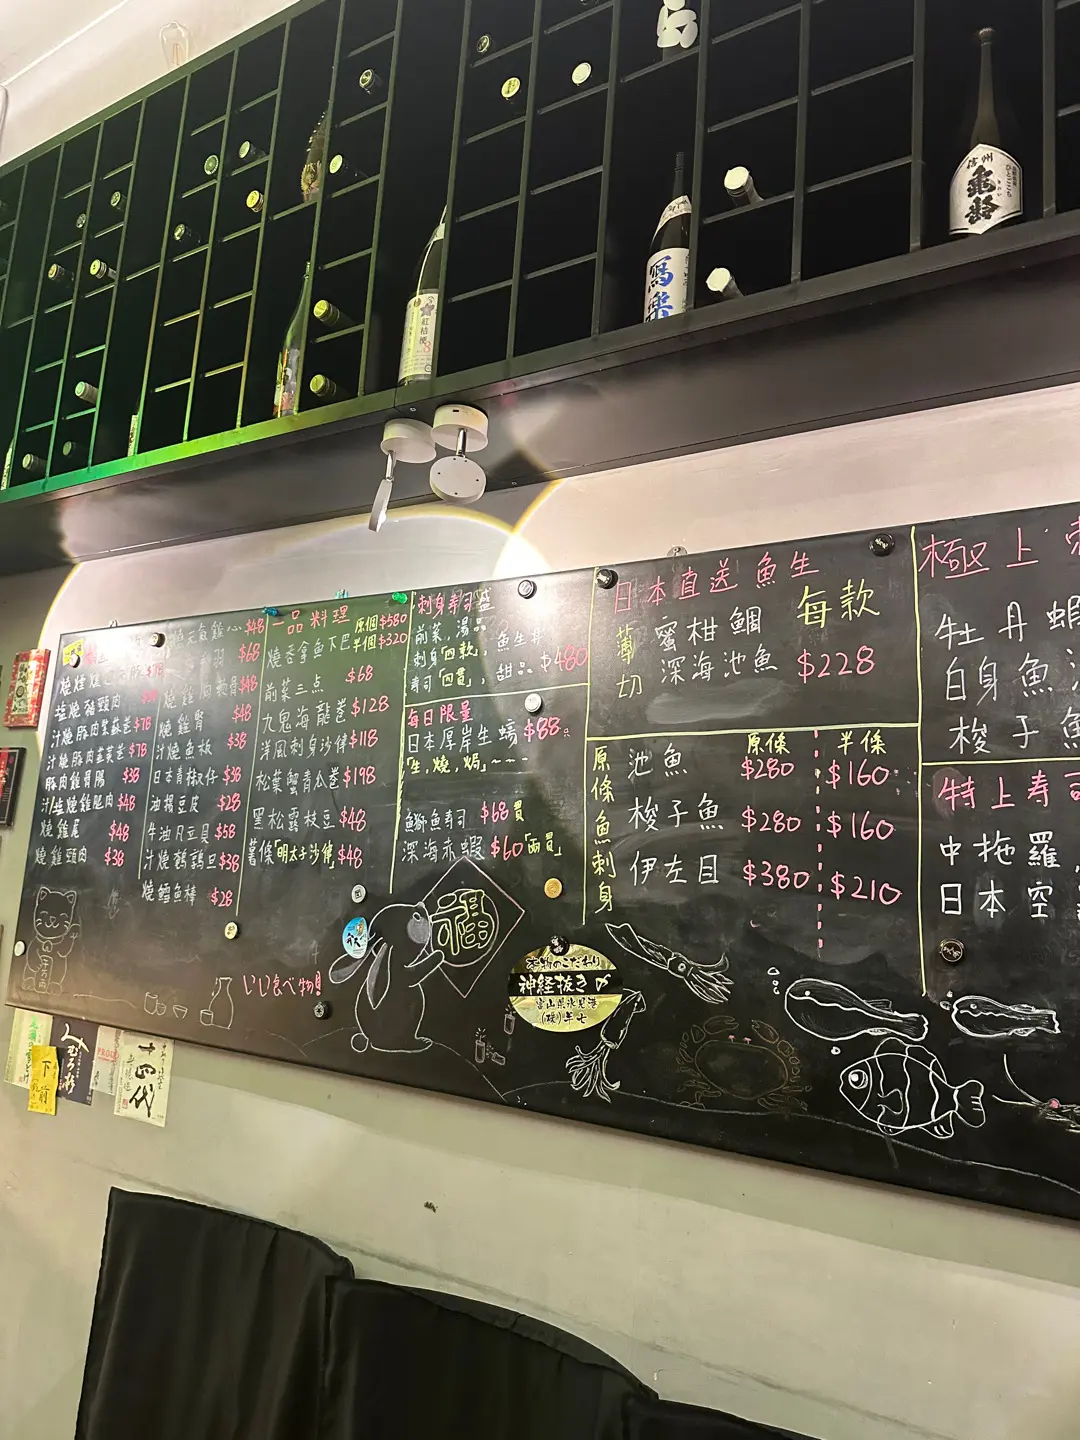 信州
亀齢
寫楽
紅桔梗
$48
$68
燒
$78
塩燒豬頸肉
$48
燒雞腎 $48
汁燒豚肉紫蘇卷 $78
汁燒魚板 $38
汁燒豚肉韭菜卷 $78
日本青椒仔 $38
豚肉雞胃腸 $38
油揚豆皮 $28
汁/塩燒雞腿肉 $48
牛油帆立貝 $58
燒雞尾 $48
汁燒鵪鶉旦 $38
燒雞頸肉 $38
燒鱈魚棒 $28
一品料理
原個 $580
燒吞拿魚下巴 半個 $320
前菜三点 $68
九鬼海龍卷 $128
洋風刺身沙律 $118
松葉蟹青瓜卷 $198
黑松露枝豆 $48
薯條「明太子沙律」 $48
いし食べ物
刺身寿司盛
前菜，湯品
刺身「四款」，魚生丼
寿司「四貫」，甜品 $480
每日限量
日本厚岸生蠔 $88只
「生，燒，焗」~~~
鰤魚寿司 $68貫
深海赤蝦 $60「兩貫」
福
日本直送魚生
薄切
蜜柑鯛 每款
深海池魚 $228
原條魚刺身
原條 半條
池魚 $280 $160
梭子魚 $280 $160
伊左目 $380 $210
極上
牡丹蝦
白身魚
梭子魚
特上寿司
中拖羅
日本空
本物のこだわり
神経抜き〆
富山県氷見港
十四代
下前